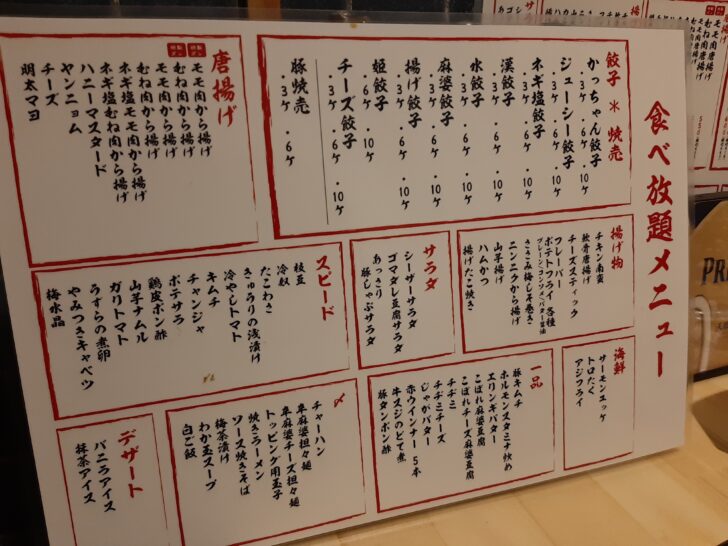 食べ放題メニュー
餃子 * 焼売
かっちゃん餃子
・3ケ ・6ケ ・10ケ
ジューシー餃子
・3ケ ・6ケ ・10ケ
ネギ塩餃子
・3ケ ・6ケ ・10ケ
漢餃子
・3ケ ・6ケ ・10ケ
水餃子
・3ケ ・6ケ ・10ケ
麻婆餃子
・3ケ ・6ケ ・10ケ
揚げ餃子
・3ケ ・6ケ ・10ケ
姫餃子
・6ケ ・10ケ
チーズ餃子
・3ケ ・6ケ ・10ケ
豚焼売
・3ケ ・6ケ
唐揚げ
モモ肉から揚げ
むね肉から揚げ
ネギ塩モモ肉から揚げ
ネギ塩むね肉から揚げ
ハニーマスタード
ヤンニョム
チーズ
明太マヨ
揚げ物
チキン南蛮
軟骨唐揚げ
チーズスティック
フレーバー
ポテトフライ 各種
プレーン・コンソメ・バター醤油
ささみ梅しそ巻き
ニンニクから揚げ
山芋揚げ
ハムかつ
揚げたこ焼き
サラダ
シーザーサラダ
ゴマダレ豆腐サラダ
あっさり
豚しゃぶサラダ
スピード
枝豆
冷奴
たこわさ
きゅうりの浅漬け
冷やしトマト
キムチ
チャンジャ
ポテサラ
鶏皮ポン酢
山芋ナムル
ガリトマト
うずらの煮卵
やみつきキャベツ
梅水晶
海鮮
サーモンユッケ
トロたく
アジフライ
一品
豚キムチ
ホルモンスタミナ炒め
エリンギバター
こぼれ麻婆豆腐
こぼれチーズ麻婆豆腐
チヂミ
チヂミチーズ
じゃがバター
赤ウインナー 5本
牛スジのどて煮
豚タンポン酢
〆
チャーハン
卑麻婆担々麺
卑麻婆チーズ担々麺
トッピング用玉子
焼きラーメン
ソース焼きそば
梅茶漬け
わか玉スープ
白ご飯
デザート
バニラアイス
抹茶アイス